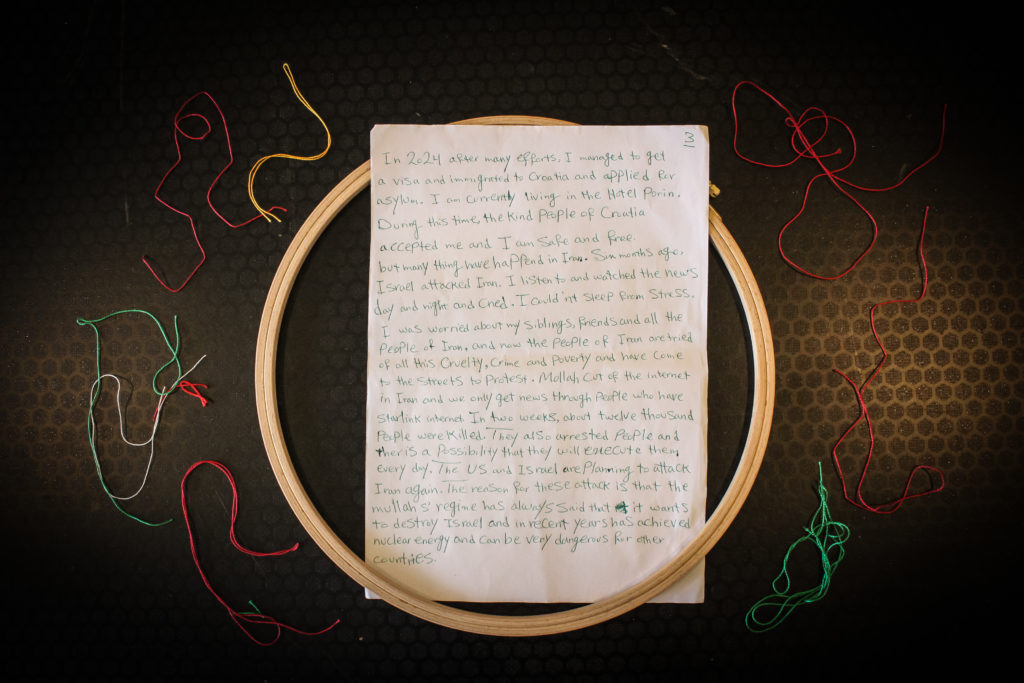 3
In 2024 after many efforts, I managed to get
a visa and immigrated to Croatia and applied for
asylum. I am currently living in the Hotel Porin.
During this time, the kind People of Croatia
accepted me and I am safe and free.
but many thing have happend in Iran. Six months ago,
Israel attacked Iran. I listen to and watched the news
day and night and cried. I could'nt sleep from stress.
I was worried about my siblings, friends and all the
People of Iran, and now the people of Iran are tried
of all this Cruelty, Crime and Poverty and have come
to the streets to Protest. Mollah cut of the internet
in Iran and we only get news through People who have
starlink internet In two weeks, about twelve thousand
People were killed. They also arrested People and
ther is a Possibility that they will execute them
every day. The US and Israel are Planning to attack
Iran again. The reason for these attack is that the
mullahs' regime has always said that it wants
to destroy Israel and in recent years has achieved
nuclear energy and can be very dangerous for other
countries.